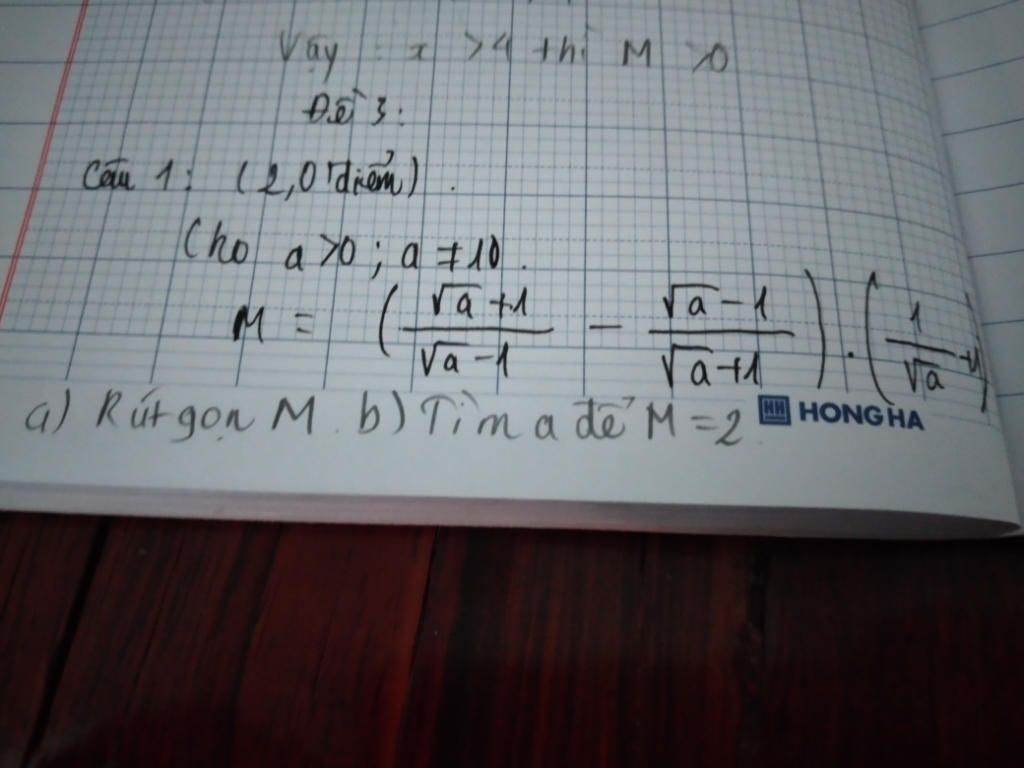 Vậy : x > 4 thì M > 0
Đề 3:
Câu 1: (2,0 điểm).
Cho a > 0 ; a ≠ 10.
M = ( (√a + 1)/(√a - 1) - (√a - 1)/(√a + 1) ) . ( 1/√a + 1)
a) Rút gọn M. b) Tìm a để M = 2.
HH HONG HA